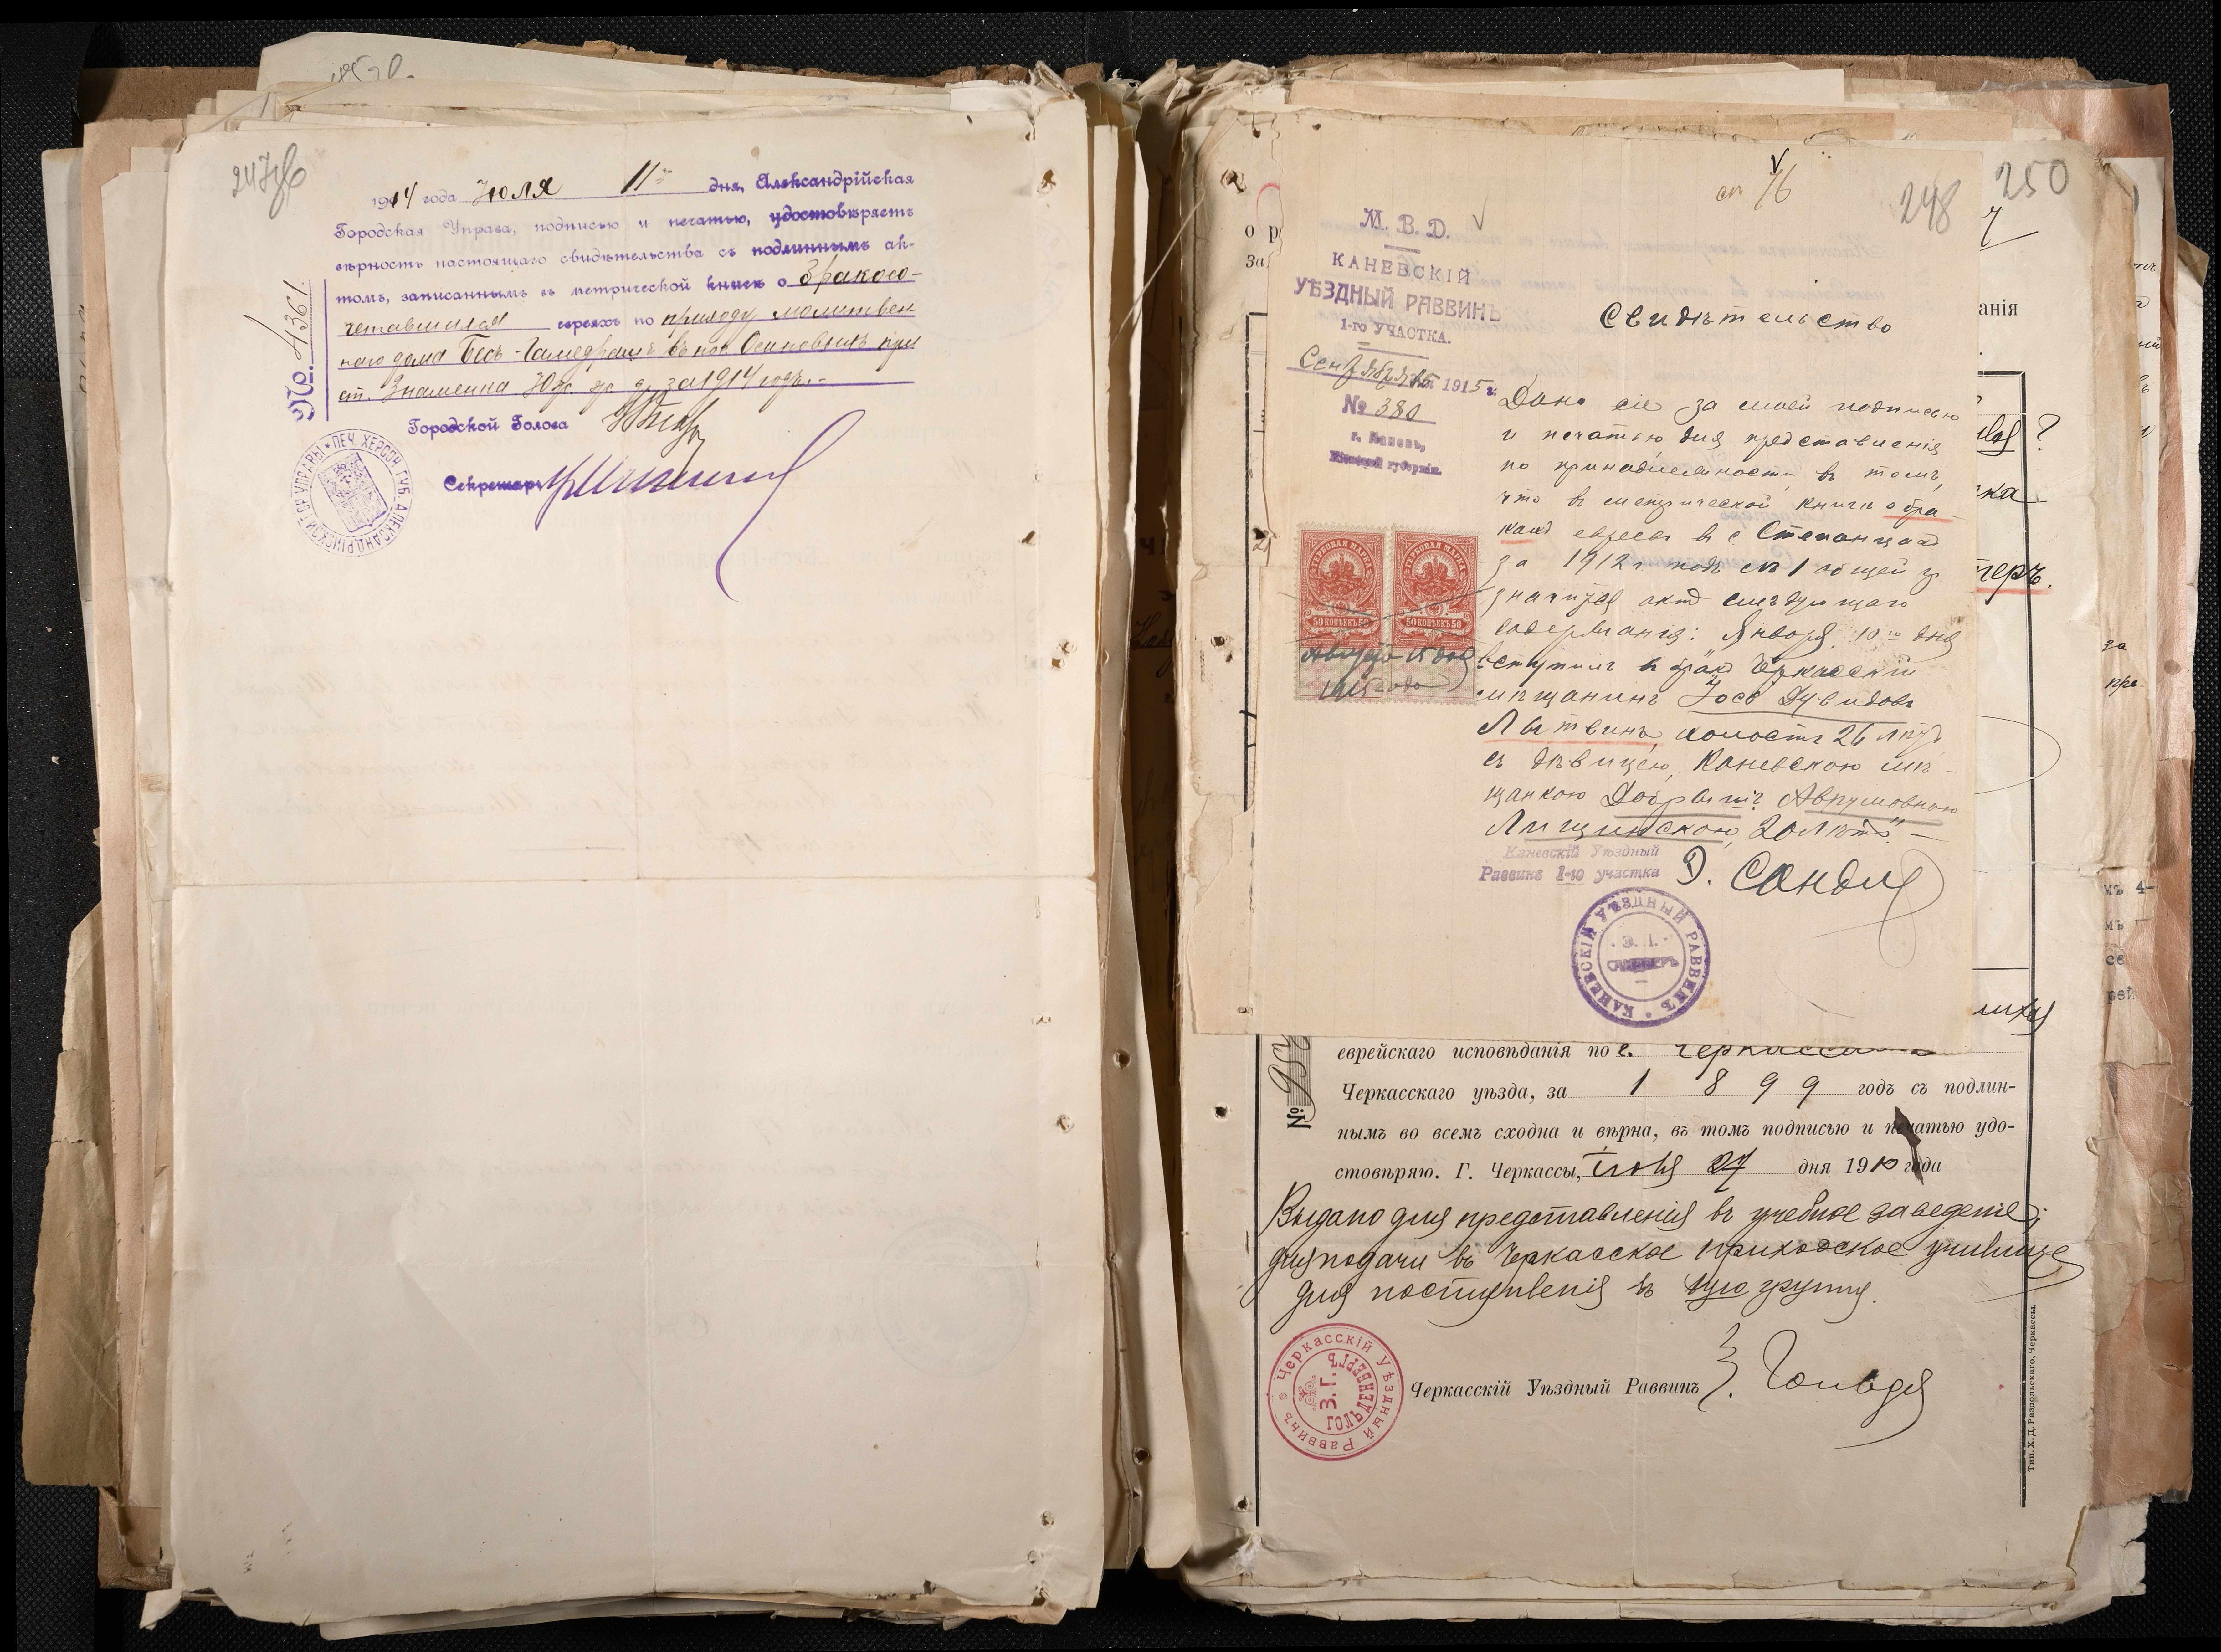 247об
1914 года Юля 11го дня, Александрійская
Городская Управа, подписью и печатью, удостовѣряетъ
вѣрность настоящаго свидѣтельства съ подлиннымъ ак-
томъ, записаннымъ въ метрической книгѣ о бракосо-
четавшихся евреяхъ по приходу молитвен
наго дома Бесъ-Гамедрашъ въ пос.
ст. Знаменка Юж. ж. д. за 1914 годъ.
№ 4361.
Городской Голова
Секретарь
ПЕЧ. ХЕРСОН. ГУБ. АЛЕКСАНДРІЙСКОЙ ГОР. УПРАВЫ
250
248
76
М. В. Д.
КАНЕВСКІЙ
УѢЗДНЫЙ РАВВИНЪ
1-го УЧАСТКА.
Сентября 15 1915 г.
№ 380
г. Каневъ,
Кіевской губерніи.
Свидѣтельство
Дано сіе за моей подписью
и печатью для представленія
по принадлежности, въ томъ,
что въ метрической книгѣ о бра-
кахъ евреевъ в с Степанцахъ
за 1912 г. подъ № 1 общей гр.
значится актъ слѣдующаго
содержанія: Января 10го дня
вступилъ в бракъ Черкасскій
мѣщанинъ Іосъ Дувидовъ
Литвинъ, холостъ 26 лѣтъ
съ дѣвицею, Каневскою мѣ-
щанкою Добрышъ Аврумовною
Лищинскою, 20 лѣтъ" —
ГЕРБОВАЯ МАРКА ГЕРБОВАЯ МАРКА
50 КОПѢЕКЪ 50 50 КОПѢЕКЪ 50
Августа 15 дня
1915 года
Каневскій Уѣздный
Раввинъ 1-го участка
КАНЕВСКІЙ УѢЗДНЫЙ РАВВИНЪ
Э. І.
о р
за
анія
?
ка
теръ.
еврейскаго исповѣданія по г. Черкассамъ
Черкасскаго уѣзда, за 1899 годъ съ подлин-
нымъ во всемъ сходна и вѣрна, въ томъ подписью и печатью удо-
стовѣряю. Г. Черкассы, Іюня 27 дня 1910 года
№ 956
Выдано для представленія въ учебное заведеніе;
для подачи въ Черкасское приходское училище
для поступленія въ 1ую группу.
Черкасскій Уѣздный Раввинъ З. Гольде
Черкасскій Уѣздный Раввинъ
З. Г. ГОЛЬДЕНБЕРГЪ
Тип. Х. Д. Раздольскаго, Черкассы.